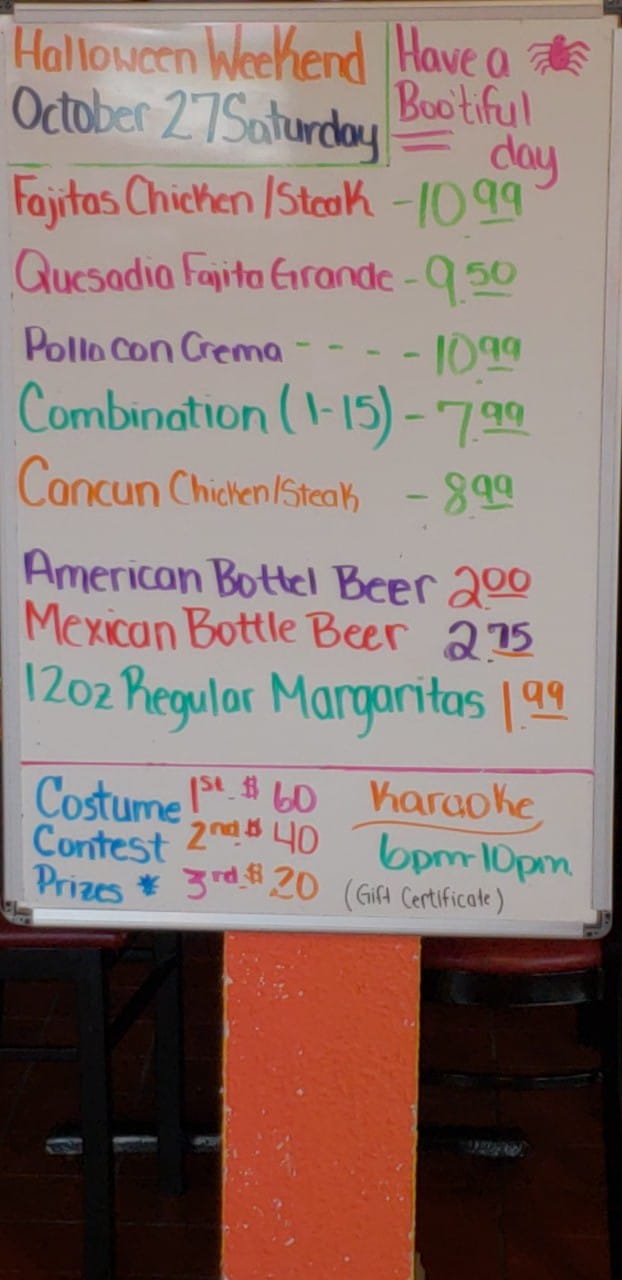 Halloween Weekend
October 27 Saturday
Have a
Boo'tiful
day
Fajitas Chicken / Steak - 10.99
Quesadia Fajita Grande - 9.50
Pollo con Crema - - - - 10.99
Combination (1-15) - 7.99
Cancun Chicken/Steak - 8.99
American Bottel Beer 2.00
Mexican Bottle Beer 2.75
12oz Regular Margaritas 1.99
Costume 1st $ 60
Contest 2nd $ 40
Prizes * 3rd $ 20
Karaoke
6pm-10pm
(Gift Certificate)